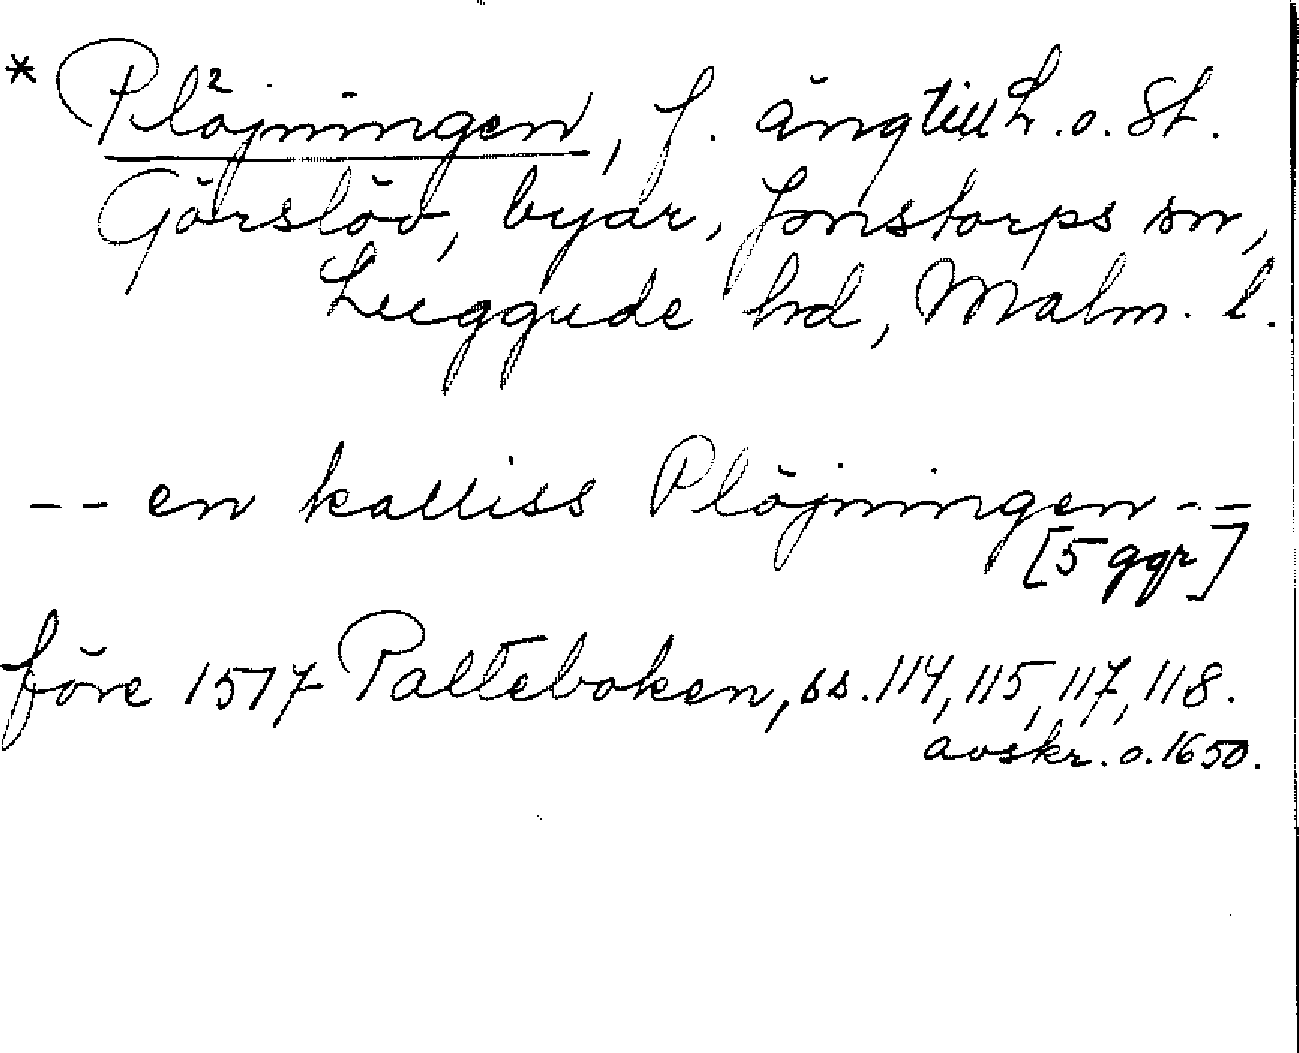 * Plöjningen, f. äng till L. o. St.
Görslöv, byar, Jonstorps sn,
Luggude hd, Malm. l.
-- en kalliss Plöjningen --
[5 ggr]
före 1517 Palteboken, ss. 114, 115, 117, 118.
avskr. o. 1650.